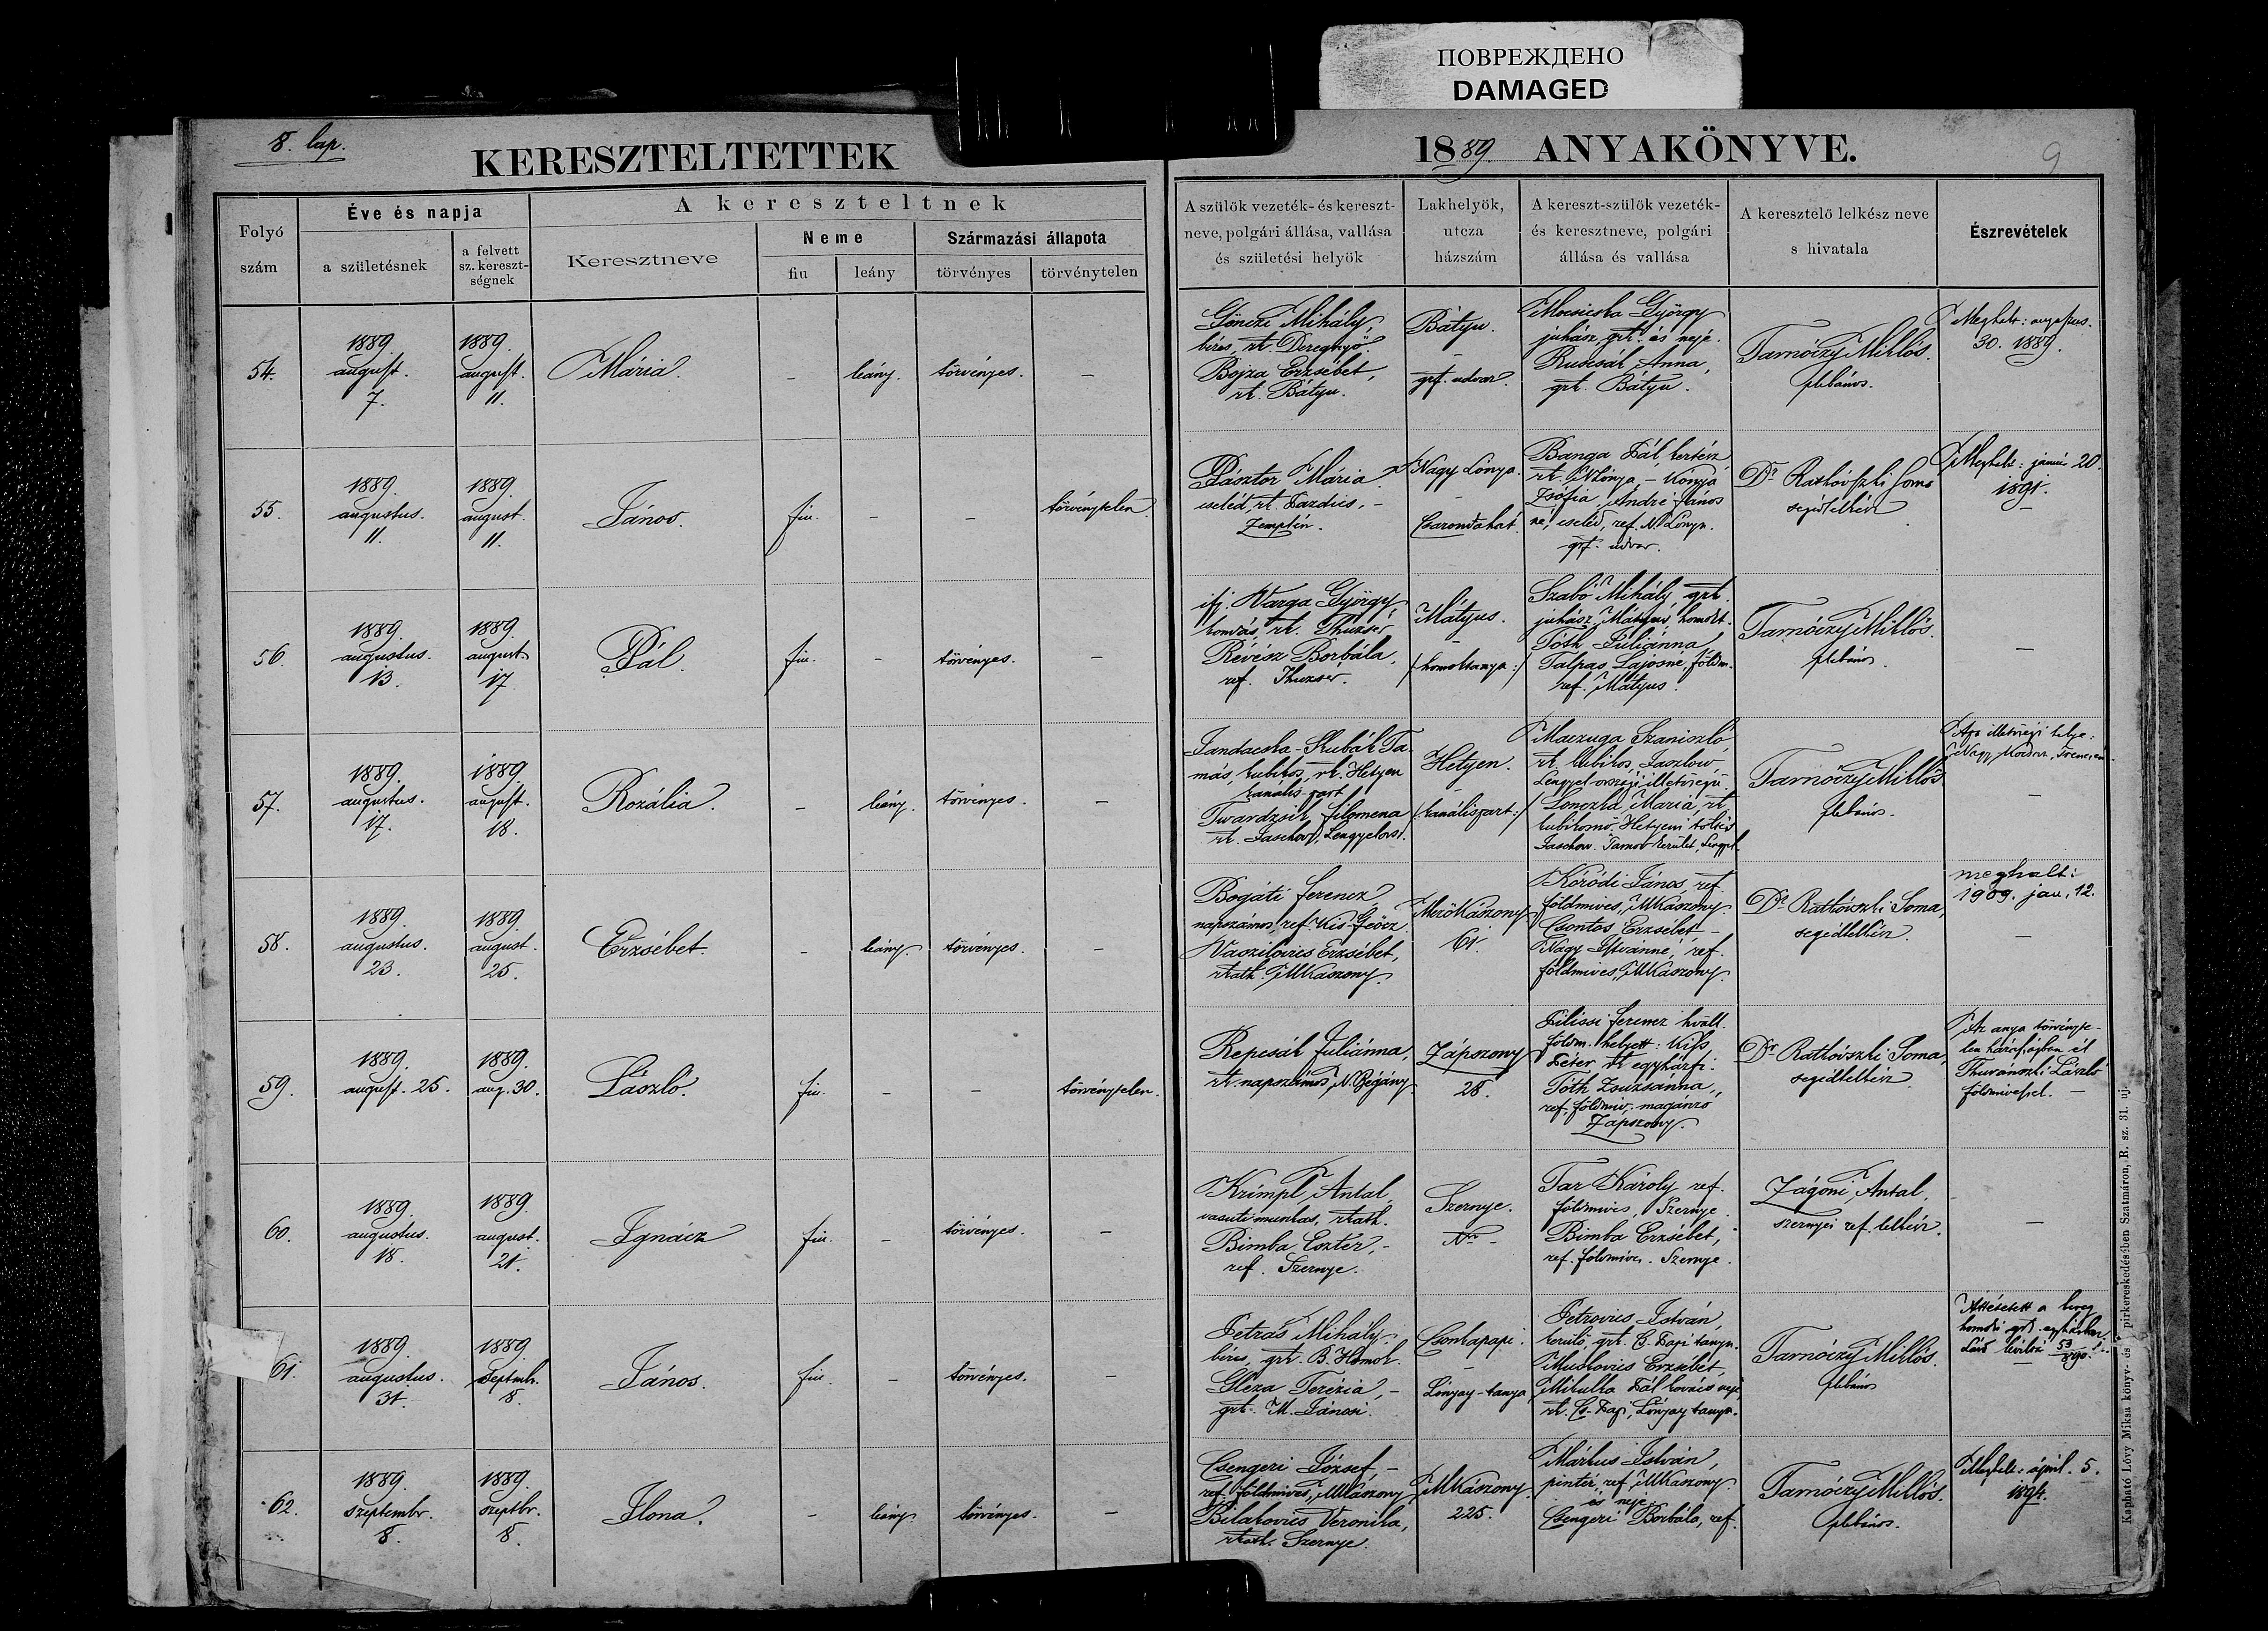 ПОВРЕЖДЕНО
DAMAGED
8. lap.
KERESZTELTETTEK
1889. ANYAKÖNYVE.
9
Folyó
szám
Éve és napja
a születésnek
a felvett
sz. kereszt-
ségnek
A kereszteltnek
Keresztneve
Neme
fiu
leány
Származási állapota
törvényes
törvénytelen
A szülők vezeték- és kereszt-
neve, polgári állása, vallása
és születési helyök
Lakhelyök,
utcza
házszám
A kereszt-szülők vezeték-
és keresztneve, polgári
állása és vallása
A keresztelő lelkész neve
s hivatala
Észrevételek
54.
1889.
august.
7.
1889.
august.
11.
Mária.
-
leány.
törvényes.
-
Gönczi Mihály,
béres, rt. Deregnyő.
Bojza Erzsébet,
rt. Bátyu.
Bátyu.
-
grf. udvar.
Mocsicska György
juhász, grt. és neje.
Ruscsák Anna,
grt. Bátyu.
Tarnóczy Miklós.
plebános.
Meghalt: augustus.
30. 1889.
55.
1889.
augustus.
11.
1889.
august.
11.
János.
fiu.
-
-
törvénytelen.
Pásztor Mária
cseléd, rt. Pazdics, -
Zemplén.
Nagy Lónya.
-
Csarondahát.
Banga Pál, kertész
rt. N.Lónya, - Konya
Zsófia, André János
né, cseléd, ref. N. Lónya.
grf. udvar.
Dr Ratkóvszki Soma
segédlelkész
Meghalt: január 20.
1891.
56.
1889.
augustus.
13.
1889.
august.
17.
Pál.
fiu.
-
törvényes.
-
ifj. Varga György
kondás, rt. Thuzsér
Révész Borbála,
ref. Thuzsér.
Mátyus.
-
/:homoktanya:/
Szabó Mihály grt.
juhász, Mátyus, homokt.
Tóth Juliánna,
Talpas Lajosné, földm.
ref. Mátyus.
Tarnóczy Miklós.
plebános.
-
57.
1889.
augustus.
17.
1889.
august.
18.
Rozália.
-
leány.
törvényes.
-
Jandacska-Skubák Ta-
más, kubikos, rt. Hetyen
kanális-part
Twardzsik Filomena
rt. Jaschow, Lengyelorsz.
Hetyen.
-
/:kanálispart:/
Maczuga Szaniszló
rt. kubikos, Jaszlow
Lengyel országi illetőségü.
Lonczka Maria, rt.
kubikosnő. Hetyeni töltés
Jaschow. Tarnow kerület, Lengyel.
Tarnóczy Miklós
plebános.
Apa illetőségi helye:
-
58.
1889.
augustus.
23.
1889.
august.
25.
Erzsébet.
-
leány.
törvényes.
-
Bogáti Ferencz,
napszámos, ref. Kis Geőcz.
Vaszilovics Erzsébet,
rkath. MKaszony.
MezőKászony
61.
Kóródi János, ref.
földmives, MKaszony.
Csontos Erzsébet -
Nagy Istvánné, ref.
földmives, MKaszony.
Dr. Ratkóvszki Soma,
segédlelkész.
meghalt:
1909. jan. 12.
-
59.
1889.
august. 25.
1889.
aug. 30.
László.
fiu.
-
-
törvénytelen.
Repcsák Juliánna,
rt. napszámos, N. Bégány.
Zápszony
28.
Pilissi Ferencz hvall.
földm. helyett: Kiss
Péter rt egyházfi.
Tóth Zsuzsanna,
ref. földmiv. magánzó
Zápszony.
Dr Ratkóvszki Soma,
segédlelkész.
Az anya törvényte-
len házasságban él
Thuránszki László
földmivessel. -
60.
1889.
augustus.
18.
1889.
august.
21.
Ignácz
fiu.
-
törvényes.
-
Krimpl Antal,
vasuti munkas, rkath.
Bimba Eszter, -
ref. Szernye.
Szernye.
Nr -
Tar Károly ref.
földmives, Szernye.
Bimba Erzsébet,
ref. földmives. Szernye.
Zágoni Antal,
szernyei ref. lelkész.
-
61.
1889.
augustus.
31.
1889.
Septembr.
8.
János.
fiu.
-
törvényes.
-
Petrás Mihály
béres, grt. B. Homok.
Gleza Terézia, -
grt. M. Jánosi.
Csonkapapi.
-
Lónyay-tanya
Petrovics István,
kerülő, grt. Cs. Papi tanya.
Muskovics Erzsébet,
Mikulka Pál kovács neje
rt. Cs-Papi, Lónyay tanya.
Tarnóczy Miklós.
plebános
Áttétetett a bereg
homoki grt. egyházhoz.
62.
1889.
szeptembr.
8.
1889.
szeptbr.
8.
Ilona.
-
leány.
törvényes.
-
Csengeri József, -
ref. földmives, MKászony
Bilakovics Veronika,
rkath. Szernye.
MKászony
225.
Márkus István,
pintér, ref. MKaszony.
és neje
Csengeri Borbála, ref.
Tarnóczy Miklós.
plebános.
Meghalt: ápril. 5.
1894.
Kapható Lővy Miksa könyv- és papirkereskedésében Szatmáron, R. sz. 31. uj.